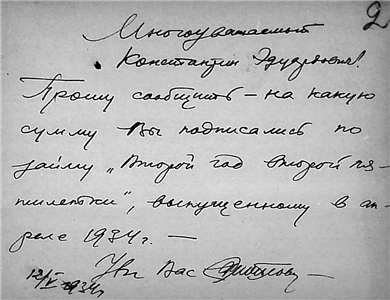 2
Многоуважаемый
Константин Эдуардович!
Прошу сообщить – на какую
сумму Вы подписались по
займу „Второй год второй пя-
тилетки", выпущенному в ап-
реле 1934 г. —
Ув. Вас
13/V 1934